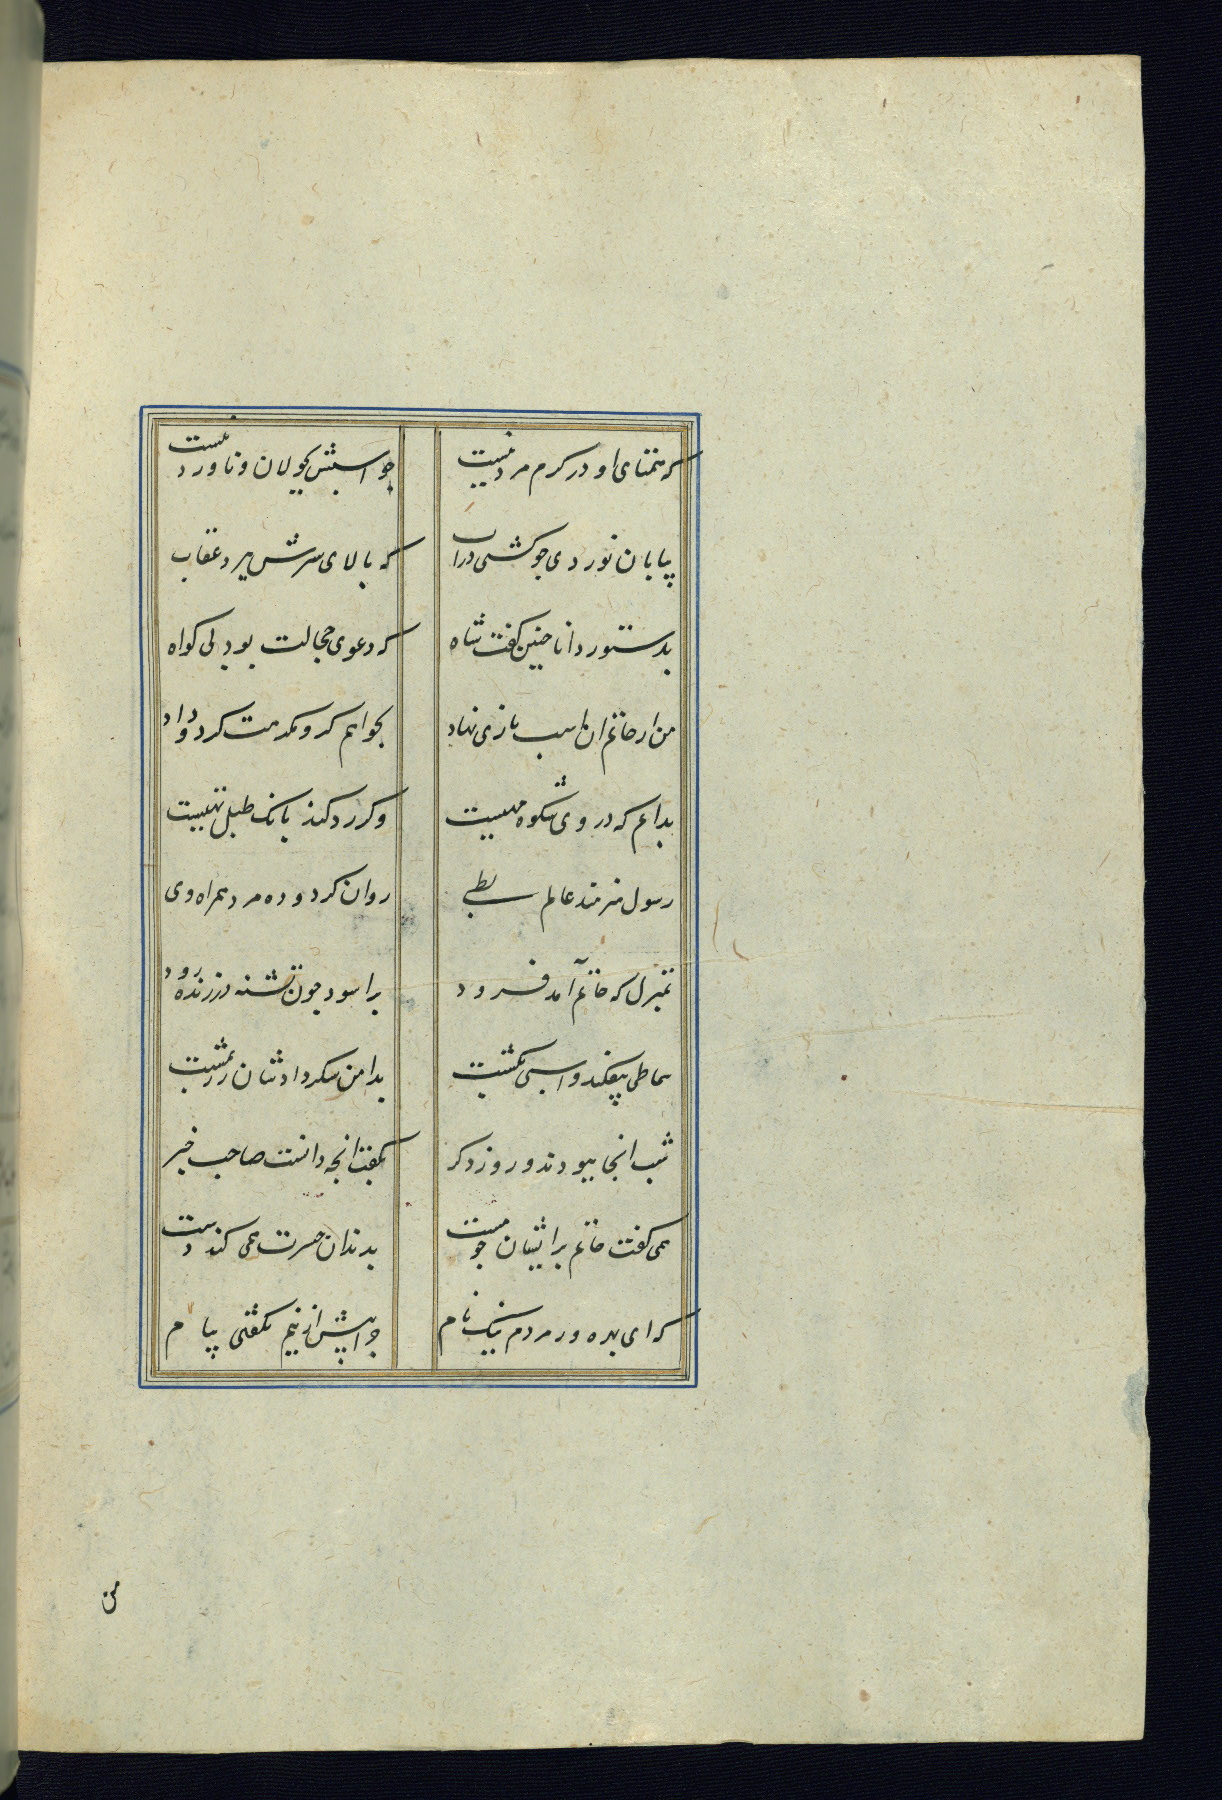 که همتای او در کرم مرد نیست چو اسبش بجولان و ناورد نیست
بیابان نوردی چو کشتی در اب که بالای سرش نپرد عقاب
بدستور دانا چنین گفت شاه که دعوی خجالت بود بی کواه
من از حاتم ان اسب تازی نهاد بخواهم کر و مکرمت کرد و داد
بدانم که در وی شکوه مهیست وکر رد کند بانک طبل تهیست
رسول هنرمند عالم بطی روان کرد و ده مرد همراه وی
بمنزل که حاتم آمد فرود براسود چون تشنه در زنده رود
سماطی بیفکند و اسبی بکشت بدامن شکر دادشان زر بمشت
شب انجا ببودند و روز دکر بکفت انچه دانست صاحب خبر
همی کفت حاتم پرایشان چو مست بدندان حسرت همی کند دست
که ای بهره ور مردم نیک نام چرا پیش ازینم نکفتی پیام
من